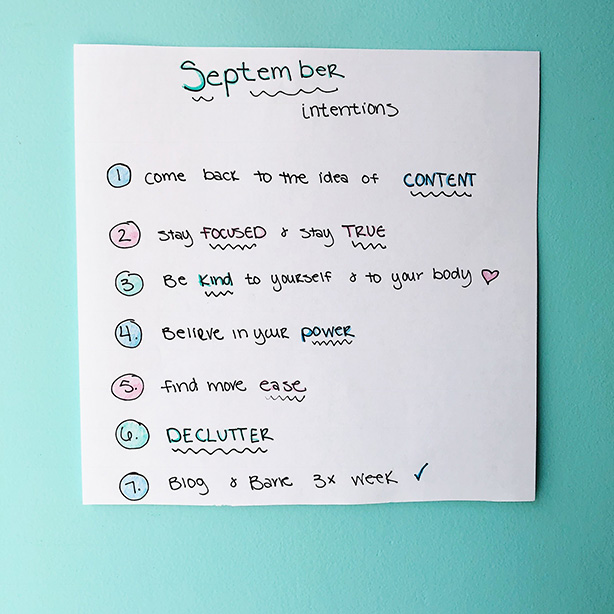 September
intentions
1 Come back to the idea of CONTENT
2. Stay FOCUSED & stay TRUE
3. Be Kind to yourself & to your body ♡
4. Believe in your power
5. find more ease
6. DECLUTTER
7. Blog & Barre 3x week ✓